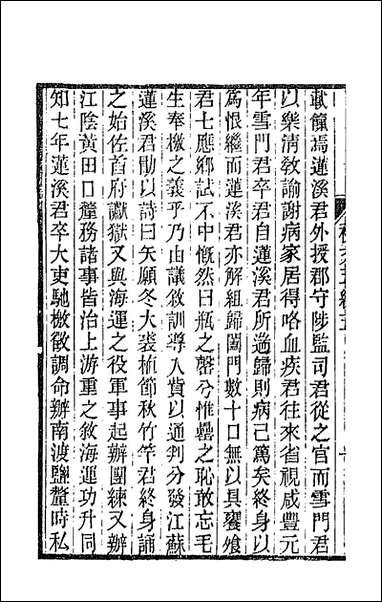 歟饉焉蓮溪君外授郡守陟監司君從之官而雪門君
以樂清教諭謝病家居得咯血疾君往來省視咸豐元
年雪門君卒君自蓮溪君所遄歸則病已篤矣終身以
爲恨繼而蓮溪君亦解組歸闔門數十口無以具饔飧
君七應鄉試不中慨然曰瓶之罄兮惟罍之恥敢忘毛
生奉檄之義乎乃由議敘訓導入貲以通判分發江蘇
蓮溪君勖以詩曰矢願冬大裘植節秋竹竿君終身誦
之始佐首府讞獄又與海運之役軍事起辦團練又辦
江陰黃田口釐務諸事皆治上游重之敘海運功升同
知七年蓮溪君卒大吏馳檄敦調命辦南渡鹽釐時私